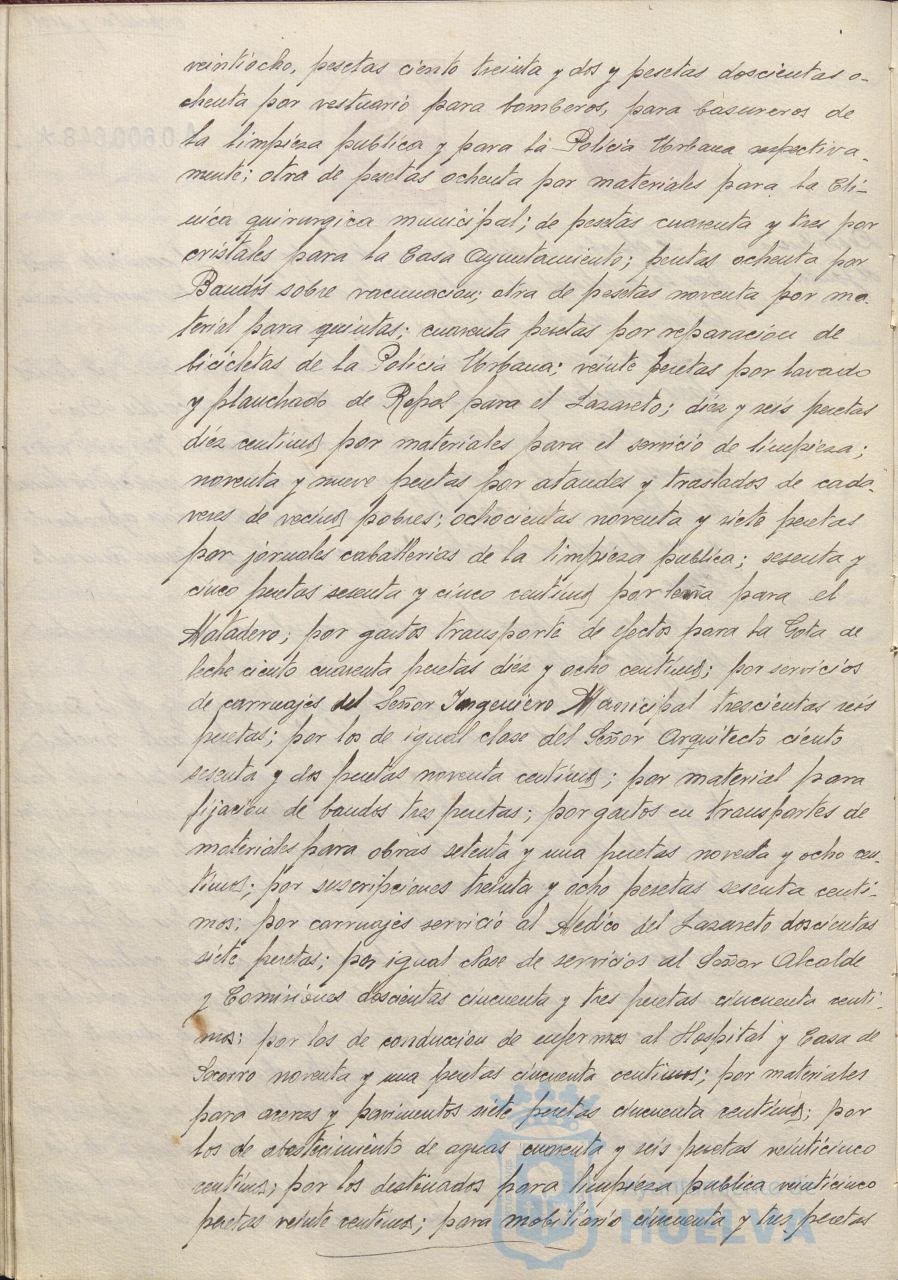 veintiocho, pesetas ciento treinta y dos y pesetas doscientas o-
chenta por vestuario para bomberos, para basureros de
la limpieza publica y para la Policia Urbana respectiva-
mente; otra de pesetas ochenta por materiales para la Cli-
nica quirurgica municipal; de pesetas cuarenta y tres por
cristales para la Casa Ayuntamiento; pesetas ochenta por
Bandos sobre vacunacion; otra de pesetas noventa por ma-
terial para quintas; cuarenta pesetas por reparacion de
bicicletas de la Policia Urbana; veinte pesetas por lavado
y planchado de Ropas para el Lazareto; diez y seis pesetas
diez centimos por materiales para el servicio de limpieza;
noventa y nueve pesetas por ataudes y traslados de cada-
veres de vecinos pobres; ochocientas noventa y siete pesetas
por jornales caballerias de la limpieza publica; sesenta y
cinco pesetas sesenta y cinco centimos por leña para el
Matadero; por gastos transporte de efectos para la Gota de
leche ciento cuarenta pesetas diez y ocho centimos; por servicios
de carruajes del Señor Ingeniero Municipal trescientas seis
pesetas; por los de igual clase del Señor Arquitecto ciento
sesenta y dos pesetas noventa centimos; por material para
fijacion de bandos tres pesetas; por gastos en transportes de
materiales para obras setenta y una pesetas noventa y ocho cen-
timos; por suscripciones treinta y ocho pesetas sesenta centi-
mos; por carruajes servicio al Medico del Lazareto doscientas
siete pesetas; por igual clase de servicios al Señor Alcalde
y Comisiones doscientas cincuenta y tres pesetas cincuenta centi-
mos; por los de conducción de enfermos al Hospital y Casa de
Socorro noventa y una pesetas cincuenta centimos; por materiales
para aceras y pavimentos siete pesetas cincuenta centimos; por
los de abastecimiento de aguas cuarenta y seis pesetas veinticinco
centimos; por los destinados para limpieza publica veinticinco
pesetas veinte centimos; para mobiliario cincuenta y tres pesetas
HUELVA